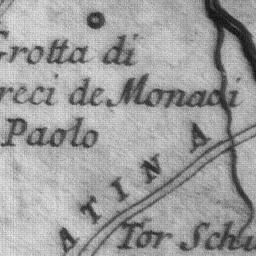 Grotta di
reci de Monaci
Paolo
ATINA
Tor Schu